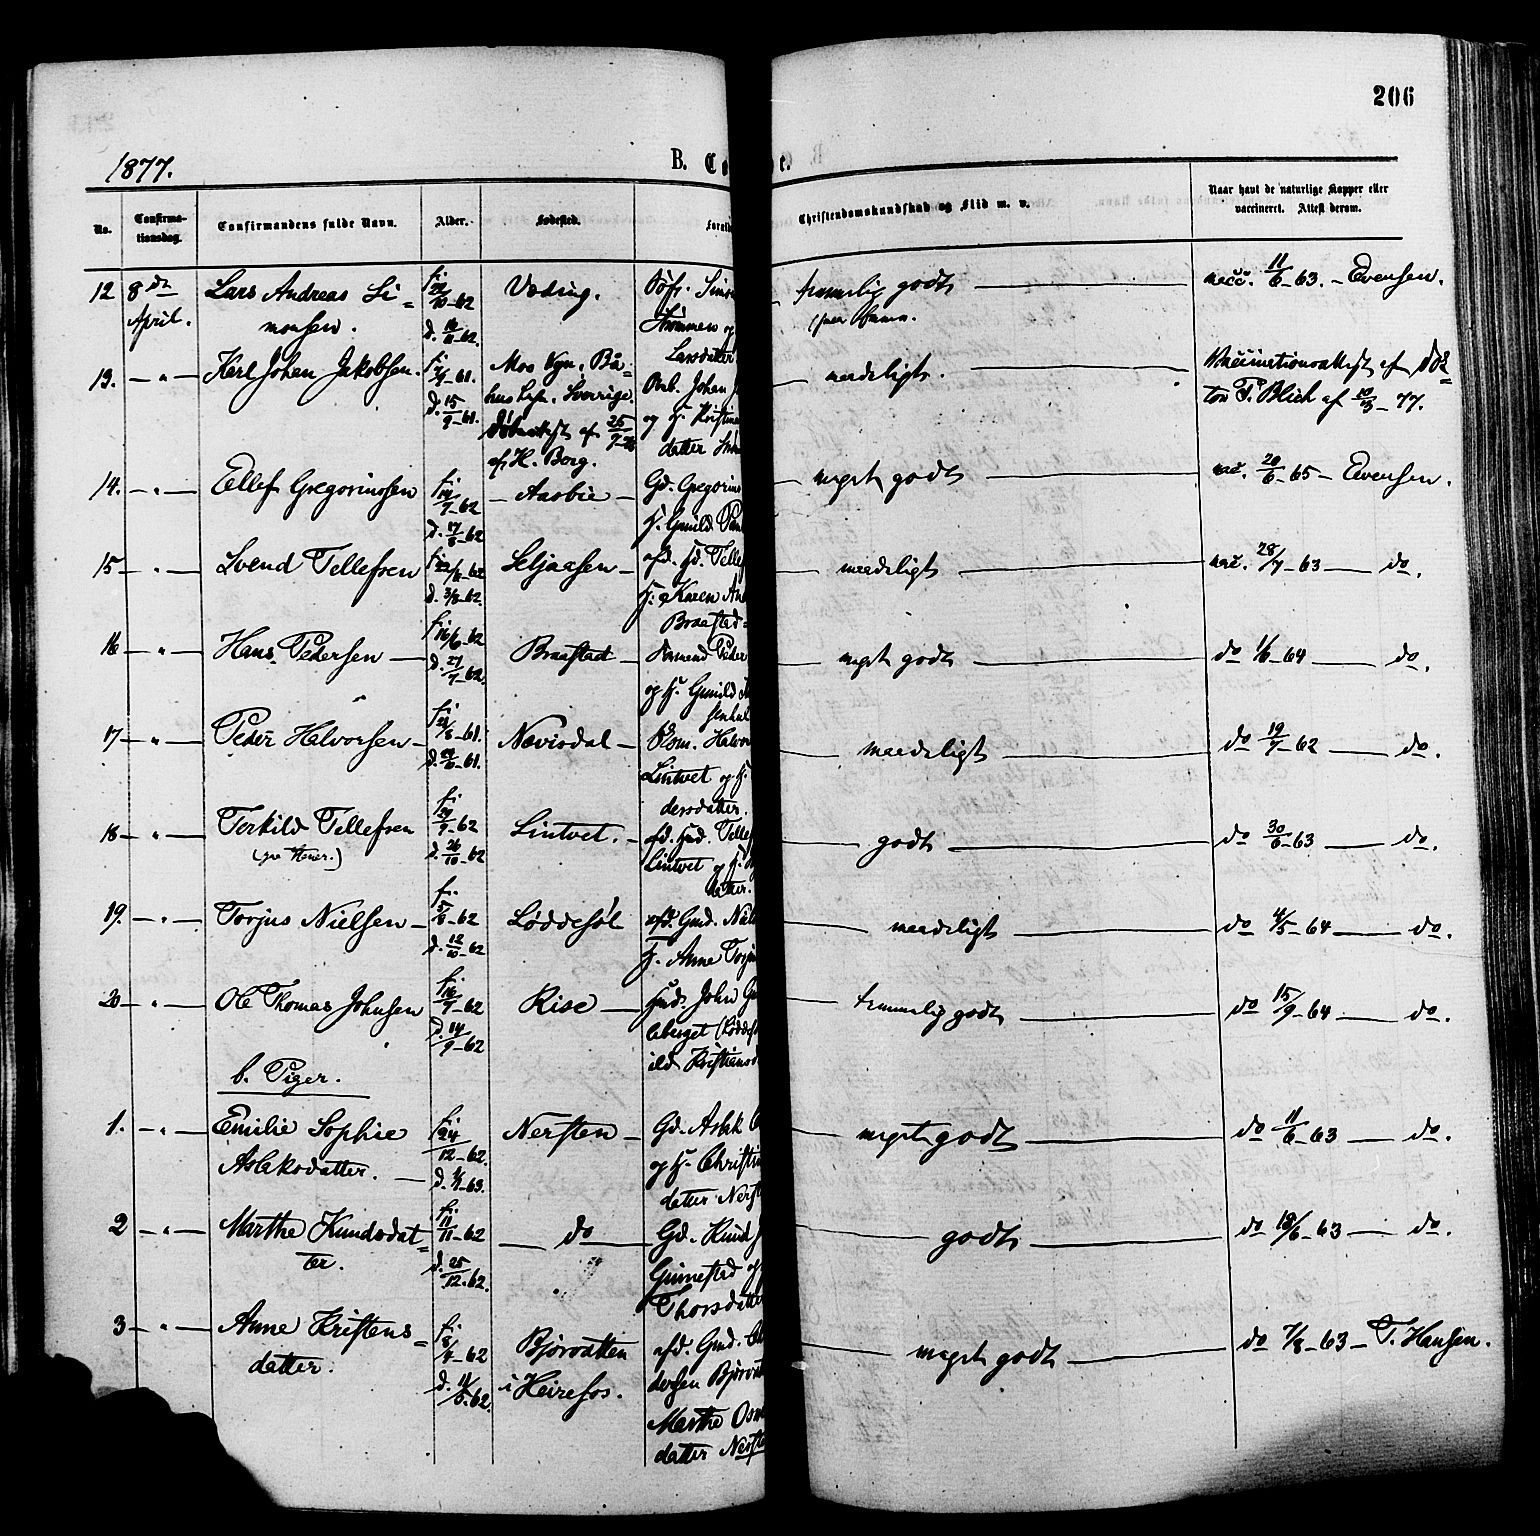 206
1877.
B. Co
e.
No.
Confirma-
tionsdag.
Confirmandens fulde Navn.
Alder.
Fødested.
Foræld
Christendomskundskab og Flid m. v.
Naar havt de naturlige Kopper eller
vaccineret. Attest derom.
12 8de April. Lars Andreas Si-
monsen.
f. 10-62
d. 11-62.
Væding.
Simo
Strømmen og
Larsdatter
temmelig godt
vacc. 11/6-63. - Evensen.
13. - " - Karl Johan Jakobsen.
f. 61.
d. 15/9-61.
Mos Sogn, Bå-
hus Lehn, Sverrige.
Døbeattest af 25/9
af H. Berg.
Arb. Johan J
og H. Kristine
datter
maadeligt.
Vaccinationsattest af Dok-
tor P. Blich af 10/3-77.
14. - " - Ellef Gregoriussen
f. 14/7-62
d. 17/8-62
- Aasbie -
Gd. Gregorius
H. Gunild
meget godt
vac. 20/6-65 - Evensen.
15 - " - Svend Tellefsen
f. 22/6-62
d. 3/8-62.
Seljaasen -
afd. Hd. Tellef
H. Karen An
Braastad-
maadeligt
vac. 28/7-63 - do.
16 - " - Hans Pedersen -
f. 16/6-62
d. 27/7-62.
Braastad -
Peder
og H. Gunild
meget godt
do 1/6-64 - do.
17 - " - Peder Halvorsen -
f. 28/8-61.
d. 61.
Nævisdal -
Halvor
Lintvet og H.
dersdatter.
maadeligt
do 19/7-62 - do.
18 - " - Terkild Tellefsen
f. 24/9-62
d. 26/10-62
Lintvet. -
afd. Hmd. Tellef
Lintvet og H.
datter.
godt
do 30/6-63 - do.
19. - " - Torjus Nielsen -
f. 5/8-62
d. 12/10-62
Løddesøl
afd. Gmd. Niels
H. Anne Torju
maadeligt
do 4/5-64 - do.
20 - " - Ole Thomas Johnsen
f. 16/7-62
d. 14/9-62
Rise -
Hmd. John G
aberget (Løddes
ild Kristiansd
temmelig godt
do 15/9-64 - do.
b. Piger.
1. - " - Emilie Sophie
Aslaksdatter. -
f. 24/12-62.
d. 1/1-63.
Nersten -
Gd. Aslak
og H. Christi
datter Nerst
meget godt
do 11/6-63 - do.
2 - " - Marthe Knudsdat-
ter.
f. 11/11-62
d. 25/12-62.
- do -
Gd. Knud
Gimestad og
Thorsdatter
godt
do 18/6-63 - do.
3 - " - Anne Kristens-
datter.
f. 8/4-62
d. 11/5-62.
Bjorvatten
i Heirefos.
afd. Gmd.
dersen Bjorvat
Marthe Osm
datter Nerste
meget godt
do 7/8-63 - T. Hansen.